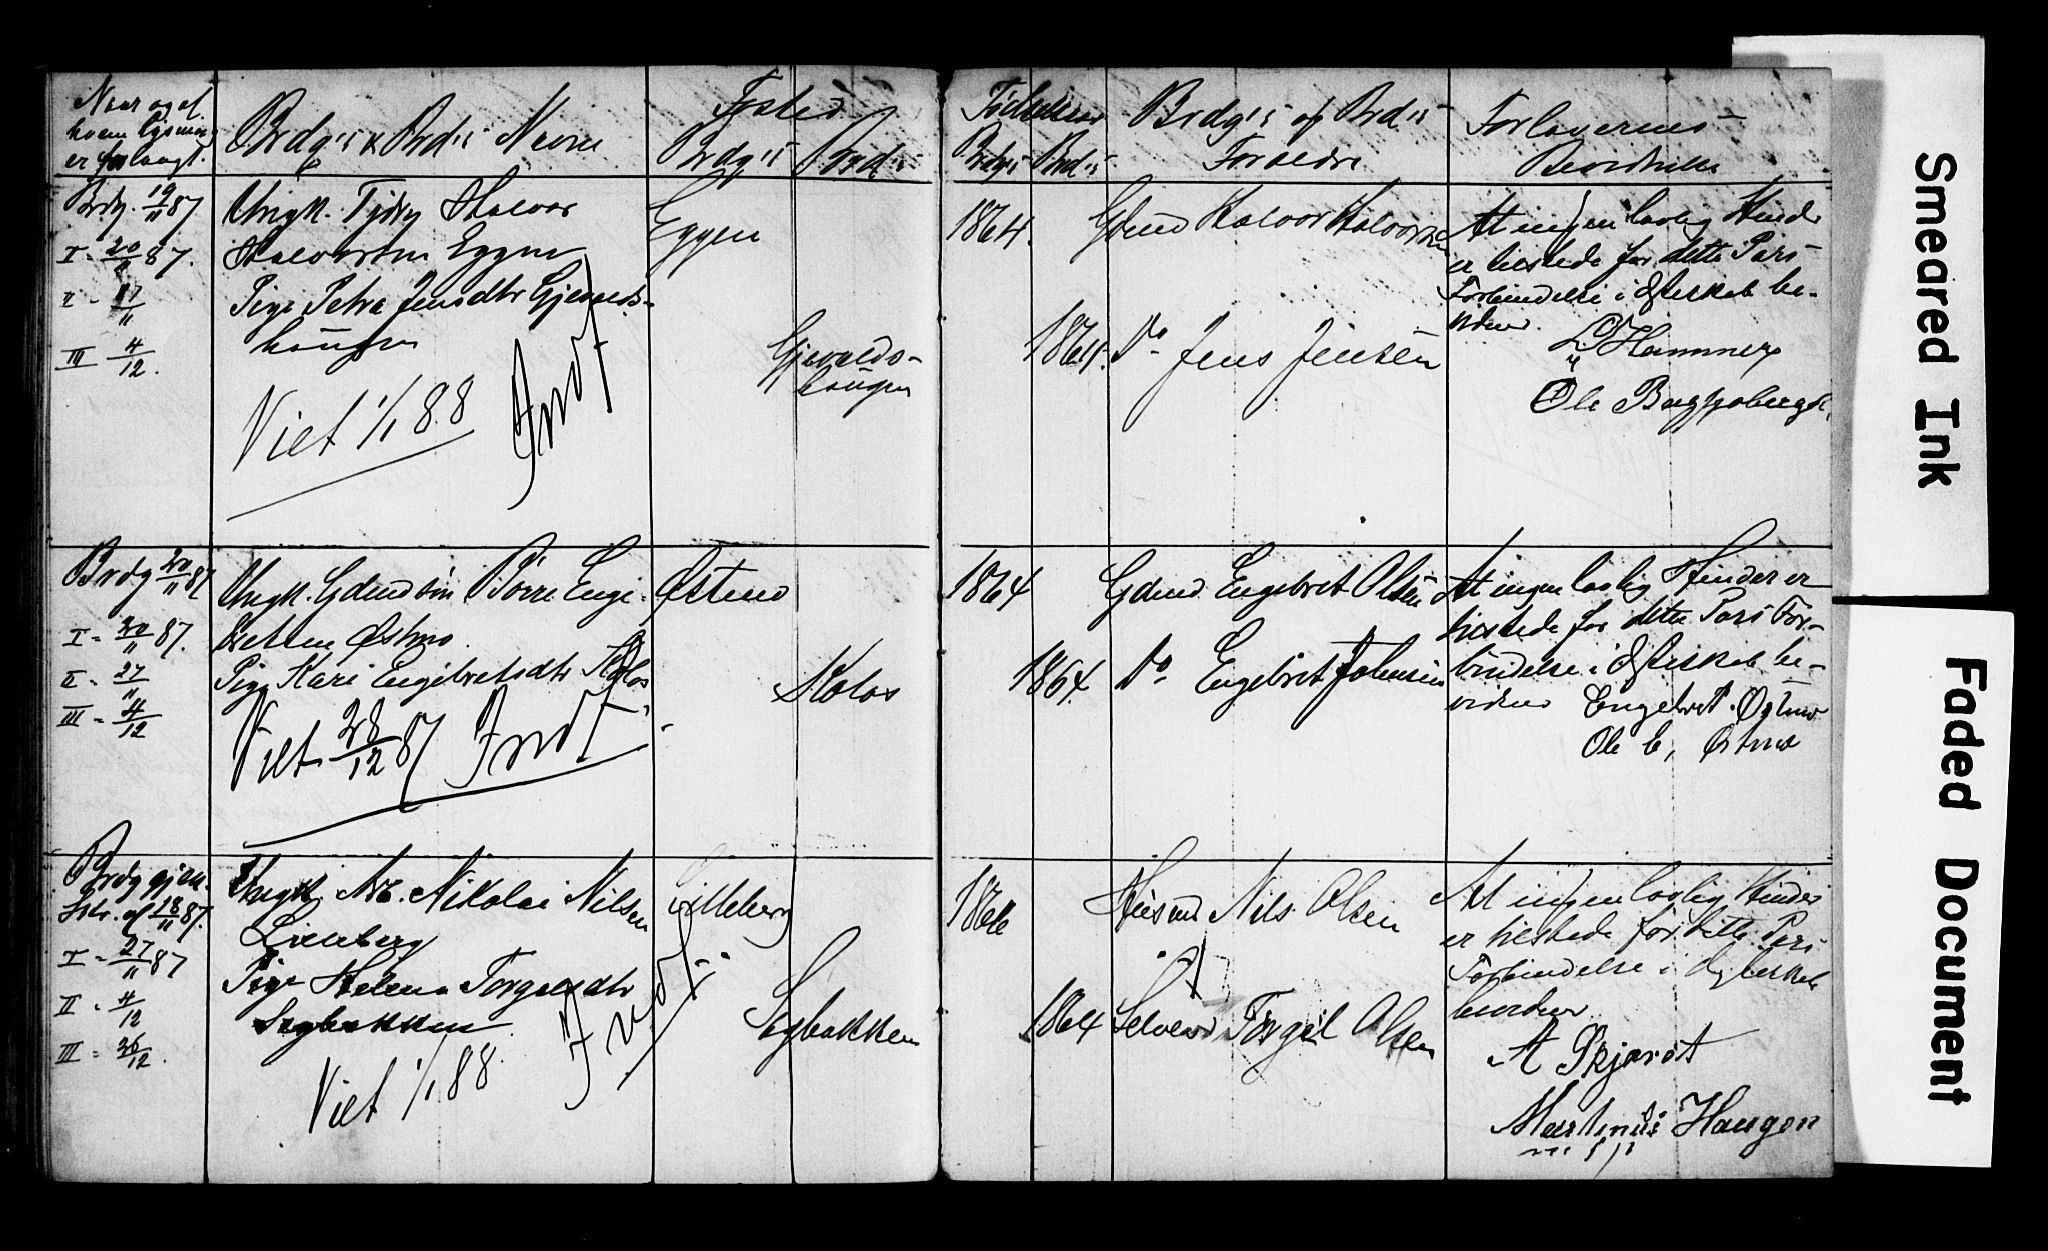 Naar og af
hvem Lysning
er forlangt.
Brdg's & Brd's Navn
Fosted
Brdg's Brd's
Fødselsaar
Brdg's Brd's
Brdg's og Brd's
Foreldre
Forlovernes
Beordrelse
Brdg. 19/11 87.
I - 20/11 87.
II - 27/11
III 4/12.
Ungk. Halvor
Halvorsen Eggen
Pige Petra Jensdtr Gjevalds-
haugen
Viet 1/1 88
Indf
Eggen
Gjevalds-
haugen
1864.
1864.
Gdmd Halvor Halvorsen
Do Jens Jensen
At ingen lovlig Hinder
er tilstede for dette Pars
Forbindelse i Ægteskab be-
vidner
Hammer
Ole
Brdg 20/11 87
I - 20/11 87.
II - 27/11
III - 4/12
Ungk. Gdmdsøn Børre Enge-
bretsen Østmo
Pige Kari Engebretsdtr Kolos
Viet 28/12 87 Indf
Østmo
Kolos
1864
1864.
Gdmd. Engebret Olsen
Do Engebret Johnsen
At ingen lovlig Hinder er
tilstede for dette Pars For-
bindelse i Ægteskab be-
vidner Engebret. Østmo
Ole E, Østmo
Brdg gjen.
Skr. af 18/11 87.
I - 27/11 87
II - 4/12
III - 26/12.
Ungk, Arb. Nikolai Nilsen
Lilleberg
Pige Helena Torgalsdtr
Sagbakken
Viet 1/1 88.
Indf
Lilleberg
Sagbakken
1866
1864
Husmd Nils Olsen
Selveier Torgal Olsen
At ingen lovlig Hinder
er tilstede for dette Pars
Forbindelse i Ægteskab
bevidner
A Skjærət
Martinus Haugen
Smeared Ink
Faded Document